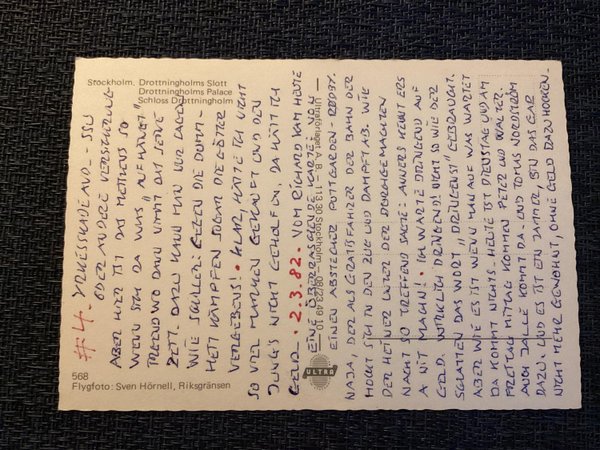 Stockholm. Drottningholms Slott
Drottningholms Palace
Schloss Drottningholm
#4. YRKESSKADEAVD. - SSU
ODER ANDERE VERSICHERUNG
ABER HIER IST DAS SO
WENN SICH DA WAS „AUFHÄNGT"
IRGENDWO DANN NIMMT DAT
ZEIT. DAZU KANN MAN NUR SAGEN
WIE SCHILLER: GEGEN DIE DUMM-
HEIT KÄMPFEN SOGAR DIE GÖTTER
VERGEBENS! • KLAR, HÄTTE ICH NICHT
SO VIEL MARKEN GEKAUFT UND DEN
JUNGS NICHT GEHOLFEN, DA HÄTT ICH
GELD. • 2.3.82. VOM RICHARD KAM HEUTE
EINE ÜBERRASCHENDE KARTE: VON
EINEM ABSTECHER PUTTGARDEN-RØDBY.
NAJA, DER ALS GRATISFAHRER DER BAHN DER
HOCKT SICH IN DEN ZUG UND DAMPFT AB. WIE
DER HEINER UNTER DER
NACHT SO TREFFEND SAGTE: ANNERS KENNT ERS
A NIT MACHN! • ICH WARTE DRINGEND AUF
GELD. WIRKLICH DRINGEND! NICHT SO WIE DER
SCHATTEN DAS WORT „DRINGENST" GEBRAUCHT.
ABER WIE ES IST WENN MAN AUF WAS WARTET
DA KOMMT NICHTS. HEUTE IST DIENSTAG UND AM
FREITAG MITTAG KOMMEN PETER UND WALTER.
AUCH JALLE KOMMT DA. UND TOMAS NORDSTRÖM
DAZU. UND ES IST EIN JAMMER, BIN DAS GAR
NICHT MEHR GEWOHNT, OHNE GELD DAZUHOCKEN.
Ultraförlaget A.B. - 113 30 Stockholm - 08/23 49 10
ULTRA
568
Flygfoto: Sven Hörnell, Riksgränsen